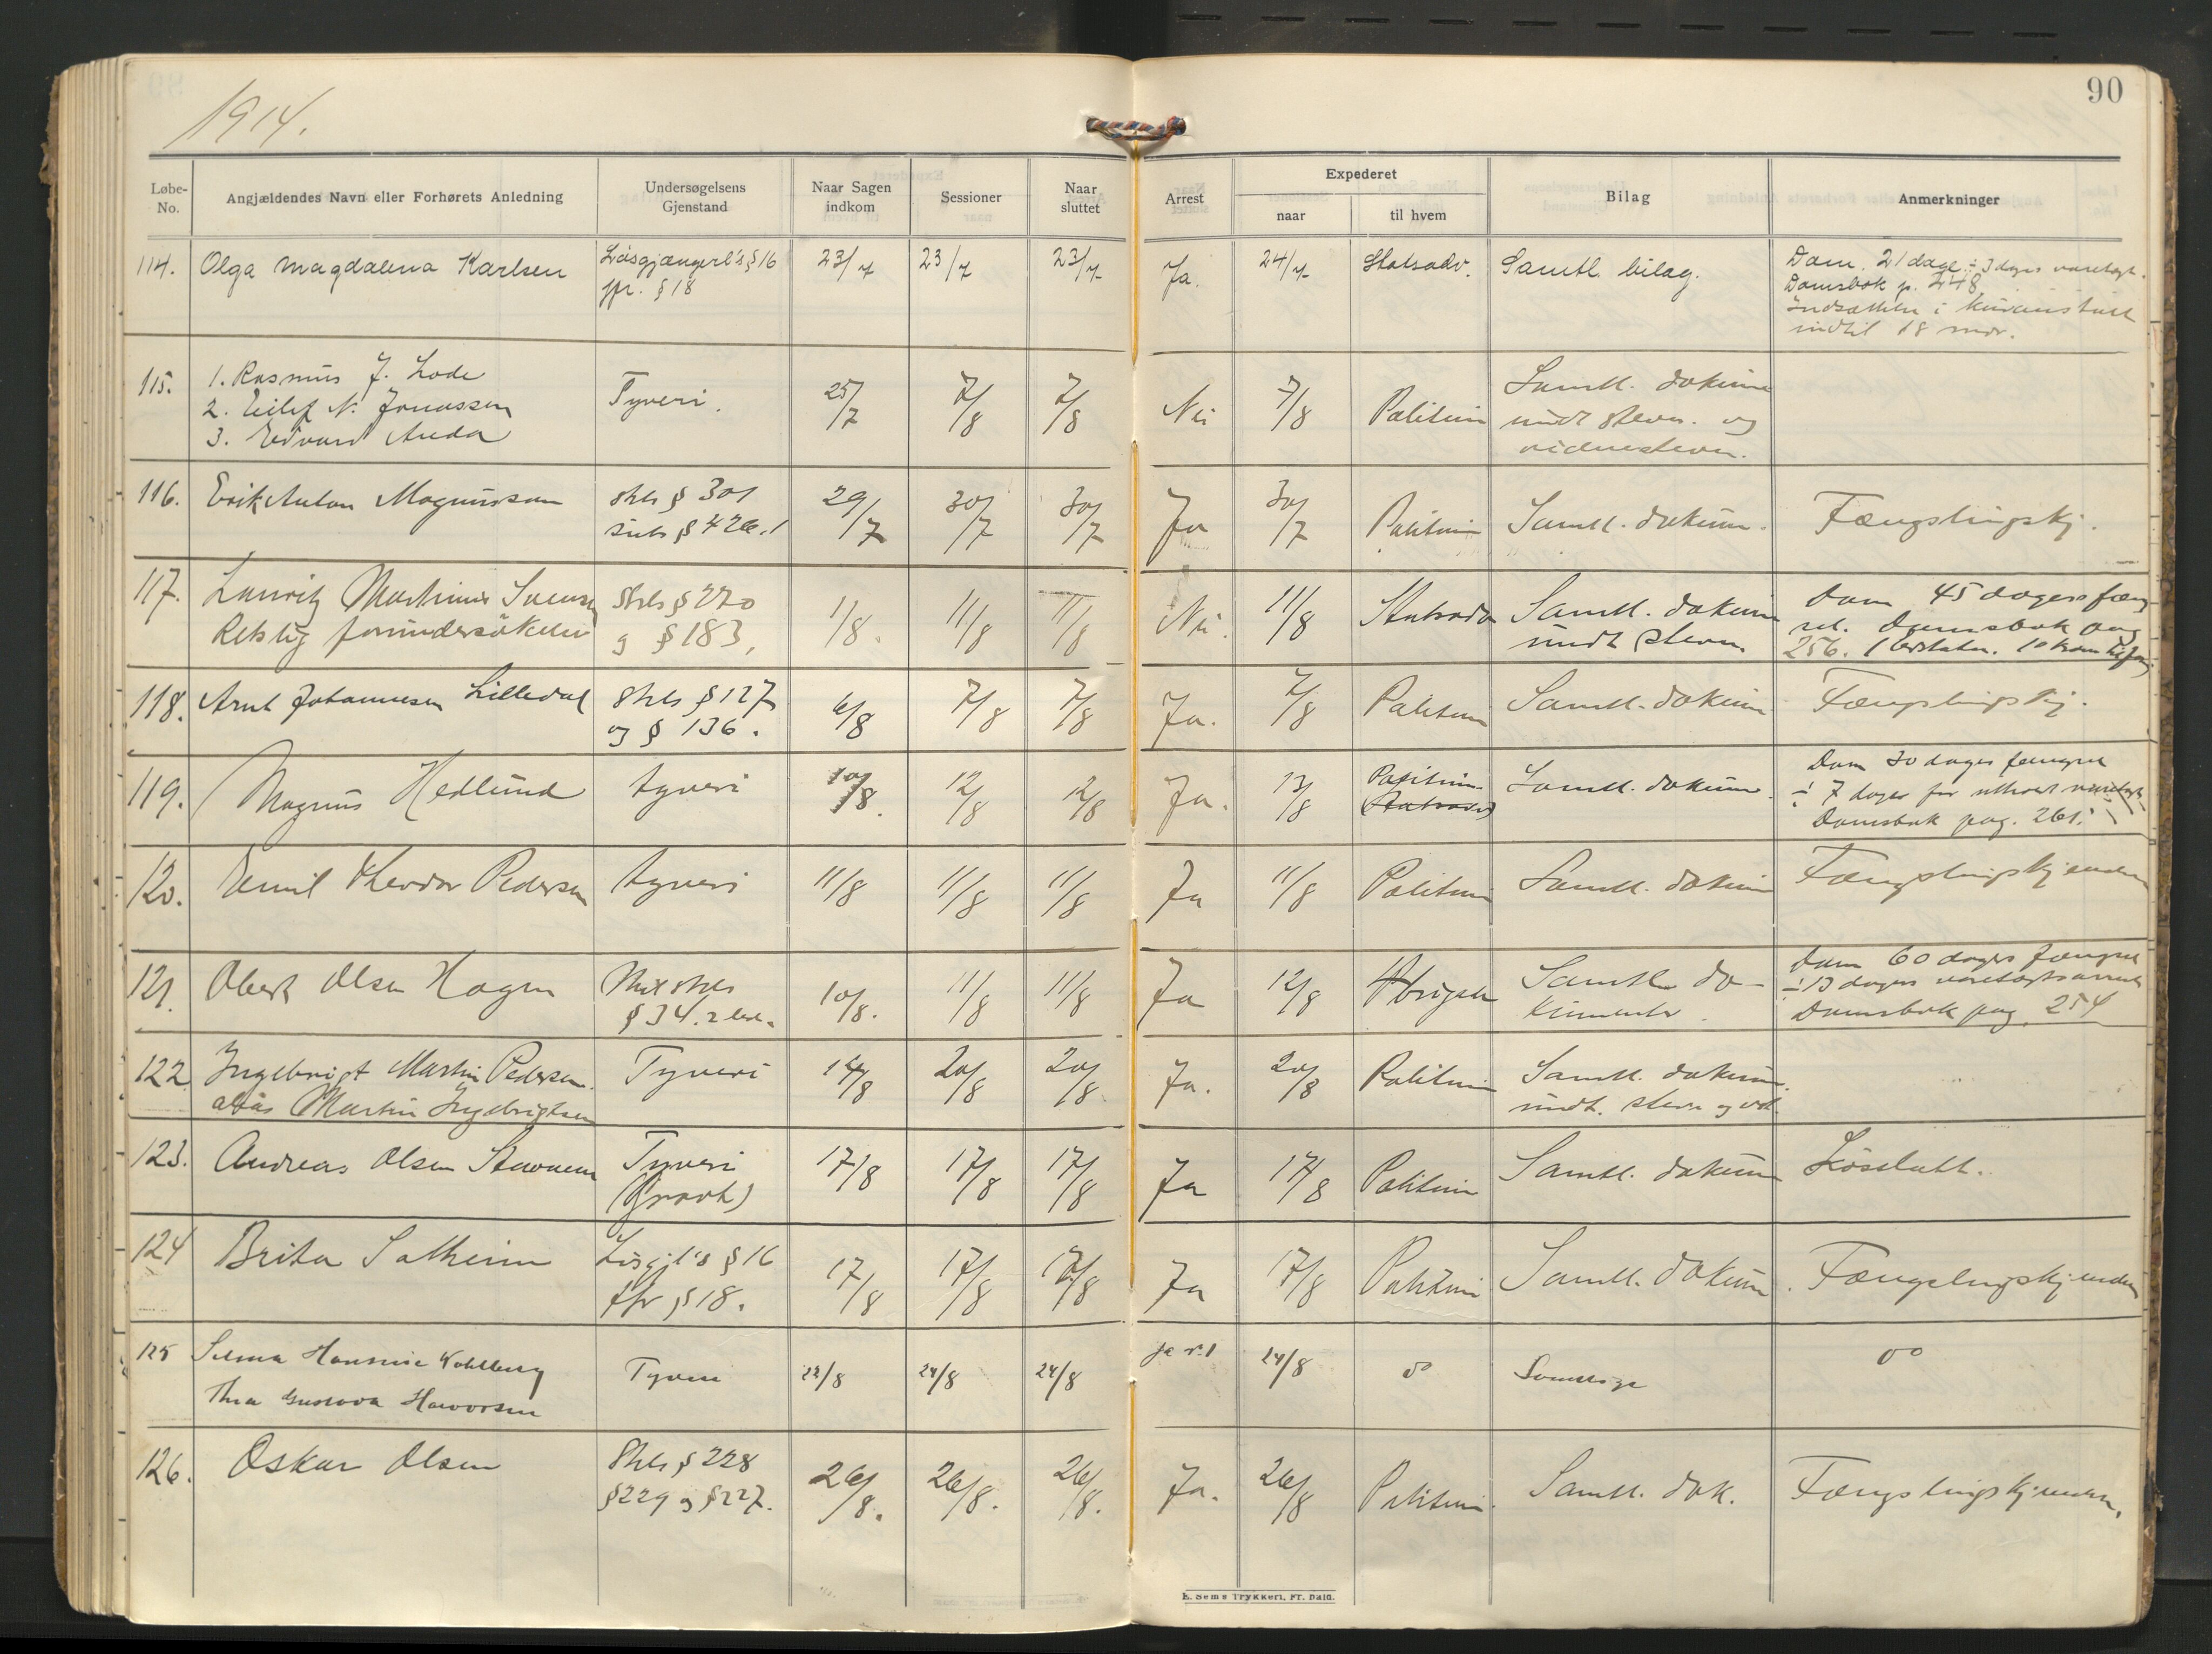 1914.
90
Løbe-No.
Angjældendes Navn eller Forhørets Anledning
Undersøgelsens Gjenstand
Naar Sagen indkom
Sessioner
Naar sluttet
Arrest
Expederet
naar
til hvem
Bilag
Anmerkninger
114. Olga Magdalena Karlsen Løsgjængerl's § 16 23/7 23/7 23/7 Ja. 24/7 Statsadv. Samtl. bilag. Dom. 21 dage ÷ 3 dages varetægt.
jfr. § 18 Domsbok p. 248
Indsættelse i
indtil 18 mdr.
115. 1. Rasmus J. Lode Tyveri. 25/7 7/8 7/8 Nei 7/8 Politim Samtl. dokum
2. Eilef N. Jonassen undt stevn. og
3. Edvard Auda vidnestevn.
116. Erik Anton Magnusson Strls § 301 29/7 30/7 30/7 Ja 30/7 Politim Samtl. dokum. Fængslingskj.
subs § 426.1
117. Lauritz Martinus Svensen Strls § 270 1/8. 11/8 11/8 Nei. 11/8 Statsadv Samtl. dokum Dom 45 dagers fæng
Retslig forundersökelse og § 183, undt stevn. sel. Domsbok pag
256.
118. Arnt Johannesen Lilledal Strls § 127 6/8 7/8 7/8 Ja. 7/8 Politim Samtl. dokum Fængslingskj.
og § 136.
119. Magnus Hedlund tyveri 10/8. 12/8 12/8 Ja. 13/8 Politim. Samtl. dokum. Dom 30 dages fængsel
Statsadv ÷ 7 dager for utholdt varetægt
Domsbok pag. 261.
120. Emil Theodor Pedersen tyveri 11/8 11/8 11/8 Ja 11/8 Politim Samtl. dokum Fængslingskjendelse
121. Obert Olsen Hagen § 34. 2 led. 10/8. 11/8 11/8 Ja 12/8 Samtl. do-
kumenter. Dom 60 dages fængsel
÷ 13 dagers varetægtsarrest
Domsbok pag. 254
122 Ingebrigt Martin Pedersen. Tyveri 14/8 20/8 20/8 Ja. 20/8 Politim Samtl. dokum.
alias Martin Ingebrigtsen undt. stevn og vdt.
123. Andreas Olsen Stavnem Tyveri 17/8 17/8 17/8 Ja 17/8 Politim Samtl. dokum Løslatt.
(Grovt)
124 Brita Solheim Løsgjl's § 16 17/8 17/8 17/8 Ja 17/8 Politim Samtl. dokum. Fængslingskjendelse
jfr § 18.
125 Selma Hansine Kohlberg Tyveri 22/8 24/8 24/8 ja nr. 1 24/8 do Samtlige do
Thea Gustava Halvorsen
126. Oskar Olsen Strls § 228 26/8. 26/8. 26/8. Ja. 26/8 Politim. Samtl. dok. Fængslingskjendelse.
§ 229 og § 227.
E. Sems Trykkeri, Fr. hald.